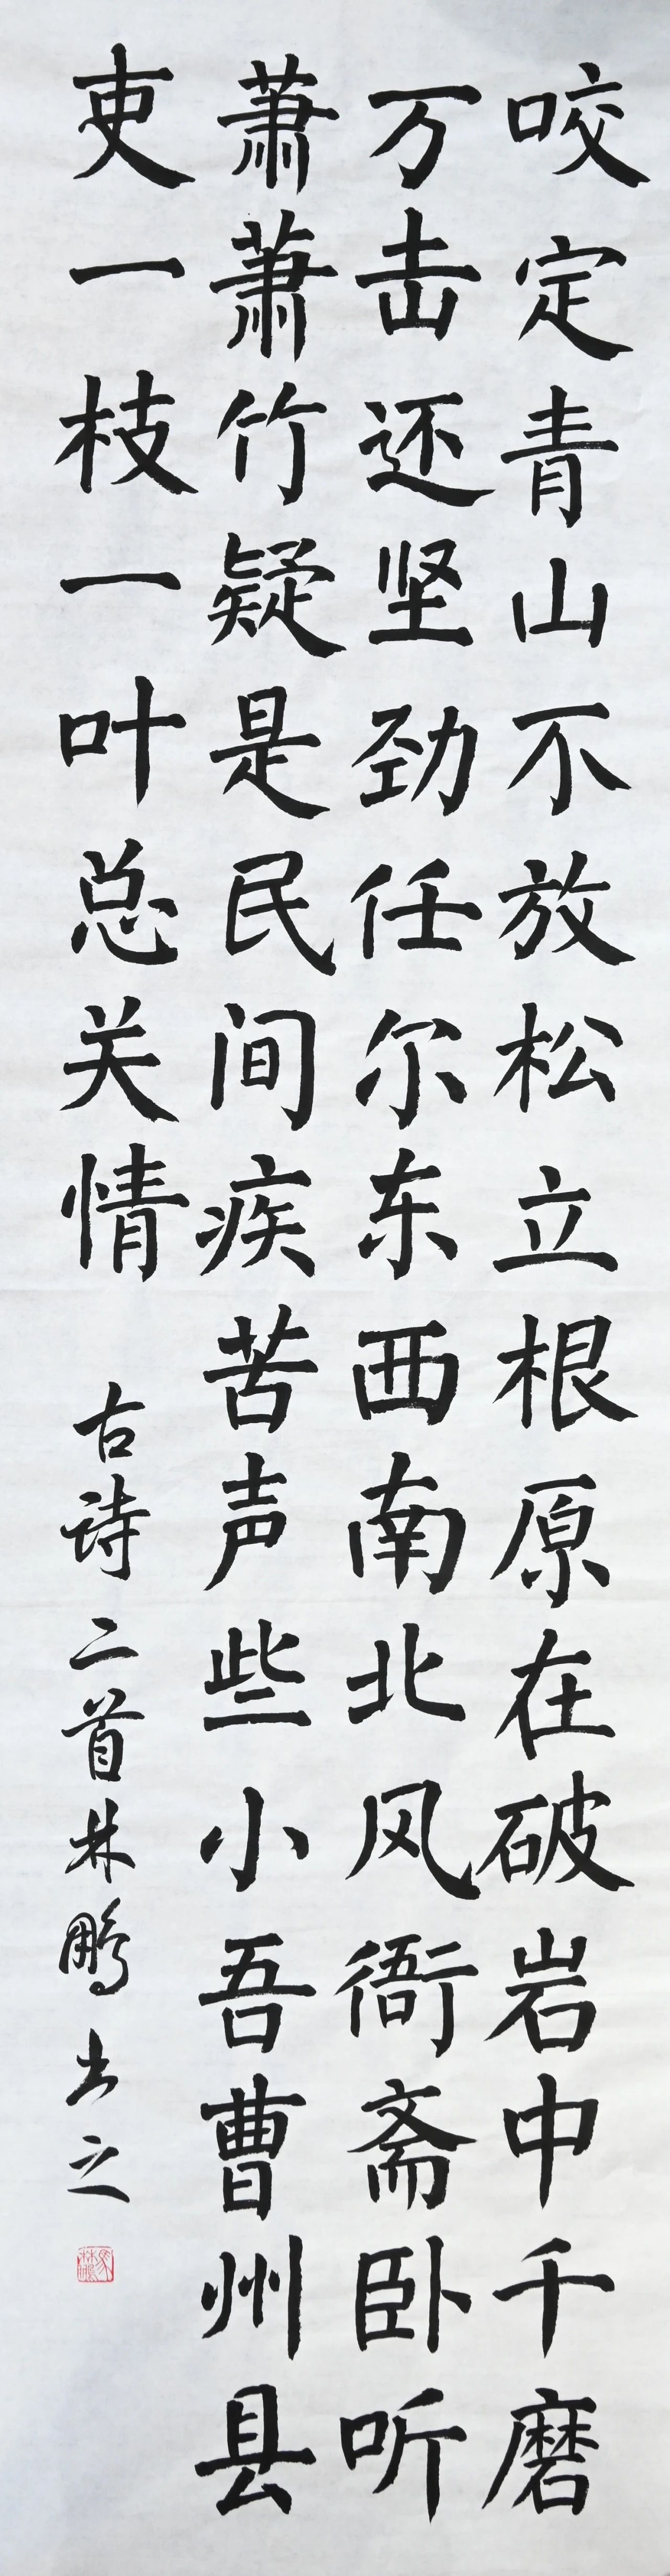 咬定青山不放松立根原在破岩中千磨
万击还坚劲任尔东西南北风衙斋卧听
萧萧竹疑是民间疾苦声些小吾曹州县
吏一枝一叶总关情
古诗二首林鹏书之